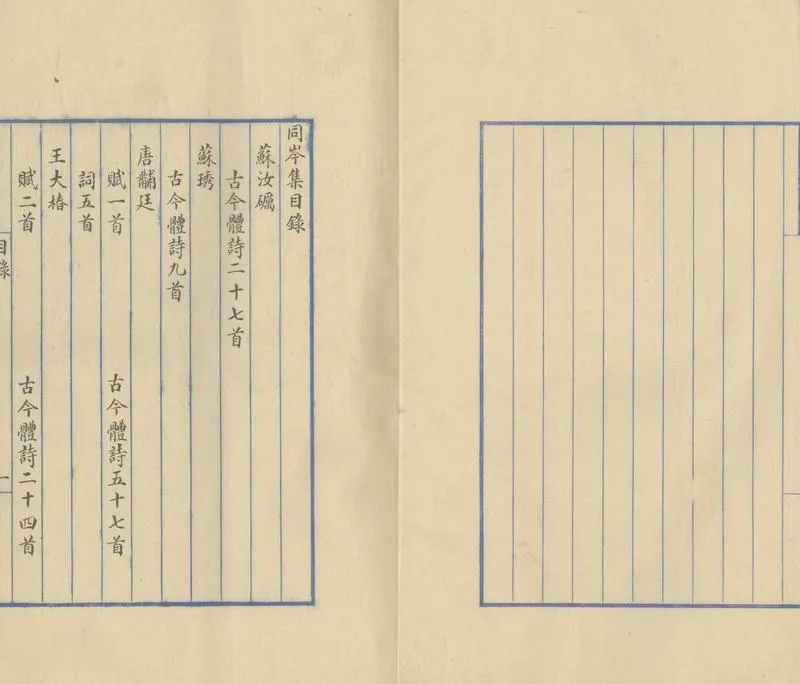 同岑集目錄
蘇汝礪
古今體詩二十七首
蘇琇
古今體詩九首
唐黼廷
賦一首 古今體詩五十七首
詞五首
王大椿
賦二首 古今體詩二十四首
目錄
一